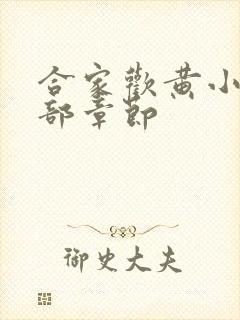 合家歡黄小
部章節
御史大夫